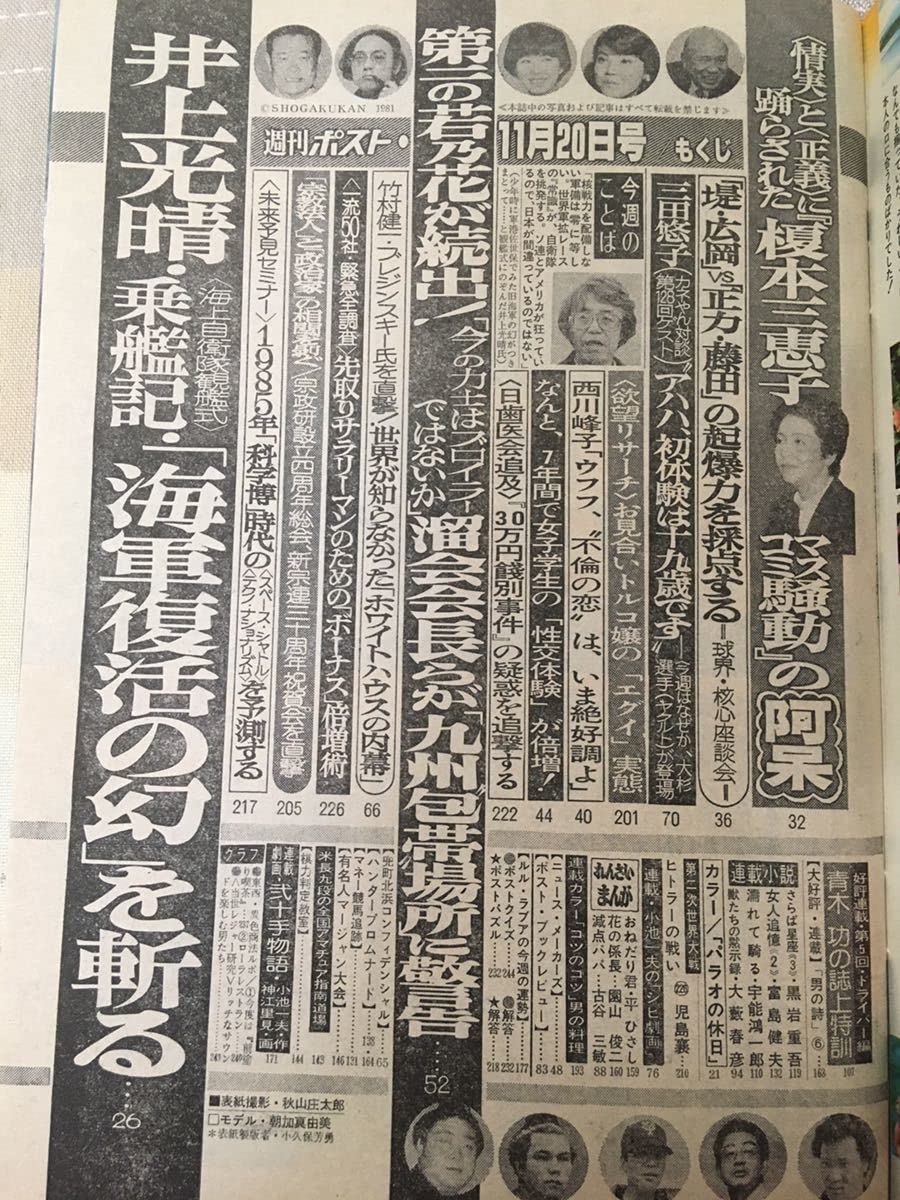 〈情実〉と〈正義〉に
踊らされた
『榎本三恵子
マスコミ騒動』の阿呆
32
「堤・広岡」VS「正力・藤田」の起爆力を採点する
＝球界・核心座談会＝
36
カネやん対談
第128回ゲスト
三田悠子
〝アハハ、初体験は十九歳です〟
―今週はなぜか、大杉
選手(ヤクルト)が登場
70
〈欲望リサーチ〉お見合いトルコ嬢の「エグイ」実態
201
西川峰子「ウフフ、〝不倫の恋〟は、いま絶好調よ」
40
なんと、7年間で女子学生の「性交体験」が倍増!
44
〈日歯医会追及〉『30万円餞別事件』の疑惑を追撃する
222
今週の
ことば
「核戦力を配備しな
い軍備は零に等し
い。世界軍拡レース
の『常識』が、自衛隊
を挑発する。ソ連とアメリカが狂ってい
るので、日本が間違っているのではない」
(少年時に軍港佐世保でみた旧海軍の幻がつき
まとって……と観艦式にのぞんだ井上光晴氏)
11月20日号 もくじ
<本誌中の写真および記事はすべて転載を禁じます>
週刊ポスト・
©SHOGAKUKAN 1981
第二の若乃花が続出!
「今の力士はブロイラー
ではないか」
溜会会長らが〝九州包帯場所〟に警告
52
竹村健一ブレジンスキー氏を直撃/世界が知らなかった「ホワイトハウスの内幕」
66
一流50社・緊急全調査 先取りサラリーマンのための「ボーナス」倍増術
226
「宗教法人」と「政治家」の相関表初公開〉宗政研設立四周年総会、新宗連三十周年祝賀会を直撃
205
〈未来予見セミナー〉1985年「科学博」時代の〈スペース・シャトル〉
〈テクノナショナリズム〉を予測する
217
井上光晴・乗艦記・
海上自衛隊観艦式
「海軍復活の幻」を斬る
26
好評連載・第5回・ドライバー編
青木 功の誌上特訓
107
【大好評・連載】「男の詩」⑥
168
連載小説
さらば星座《3》・黒岩重吾
119
女人追憶《2》・富島健夫
132
濡れて騎る・宇能鴻一郎
110
獣たちの黙示録・大藪春彦
94
カラー/「パラオの休日」
21
第二次世界大戦
ヒトラーの戦い
児島襄
210
連載・小池一夫の「シビ劇画」
76
れんさい
まんが
おねだり君・平 ひさし
159
花の係長・園山 俊二
160
減点パパ・古谷 三敏
88
連載カラー・コツのコツ」男の料理
193
【ニュース・メーカーズ】
48
【ポスト・ブックレビュー】
83
【ルル・ラブアの今週の運勢】
177
●ポスト・クイズ
244
●解答
232
★ポスト・パズル
232
★解答
218
【兜町北浜コンフィデンシャル】
65
【ハンタープロムナード】
138・164
【マネー競馬追跡】
131
【有名人マージャン大会】
146
米長九段の全国アマチュア指南道場
143
【棋力判定教室】
144
連載
劇画・弐十手物語・小池一夫・作
神江里見・画
171
グラフ
■表紙撮影・秋山庄太郎
□モデル・朝加真由美
＊表紙製版者・小久保芳勇